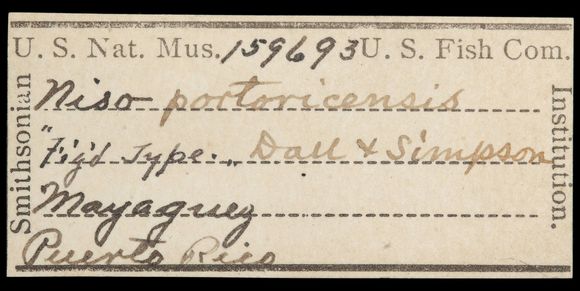 U. S. Nat. Mus. 159693 U. S. Fish Com.
Smithsonian
Niso portoricensis
"Fig'd Type." Dall & Simpson
Mayaguez
Puerto Rico
Institution.